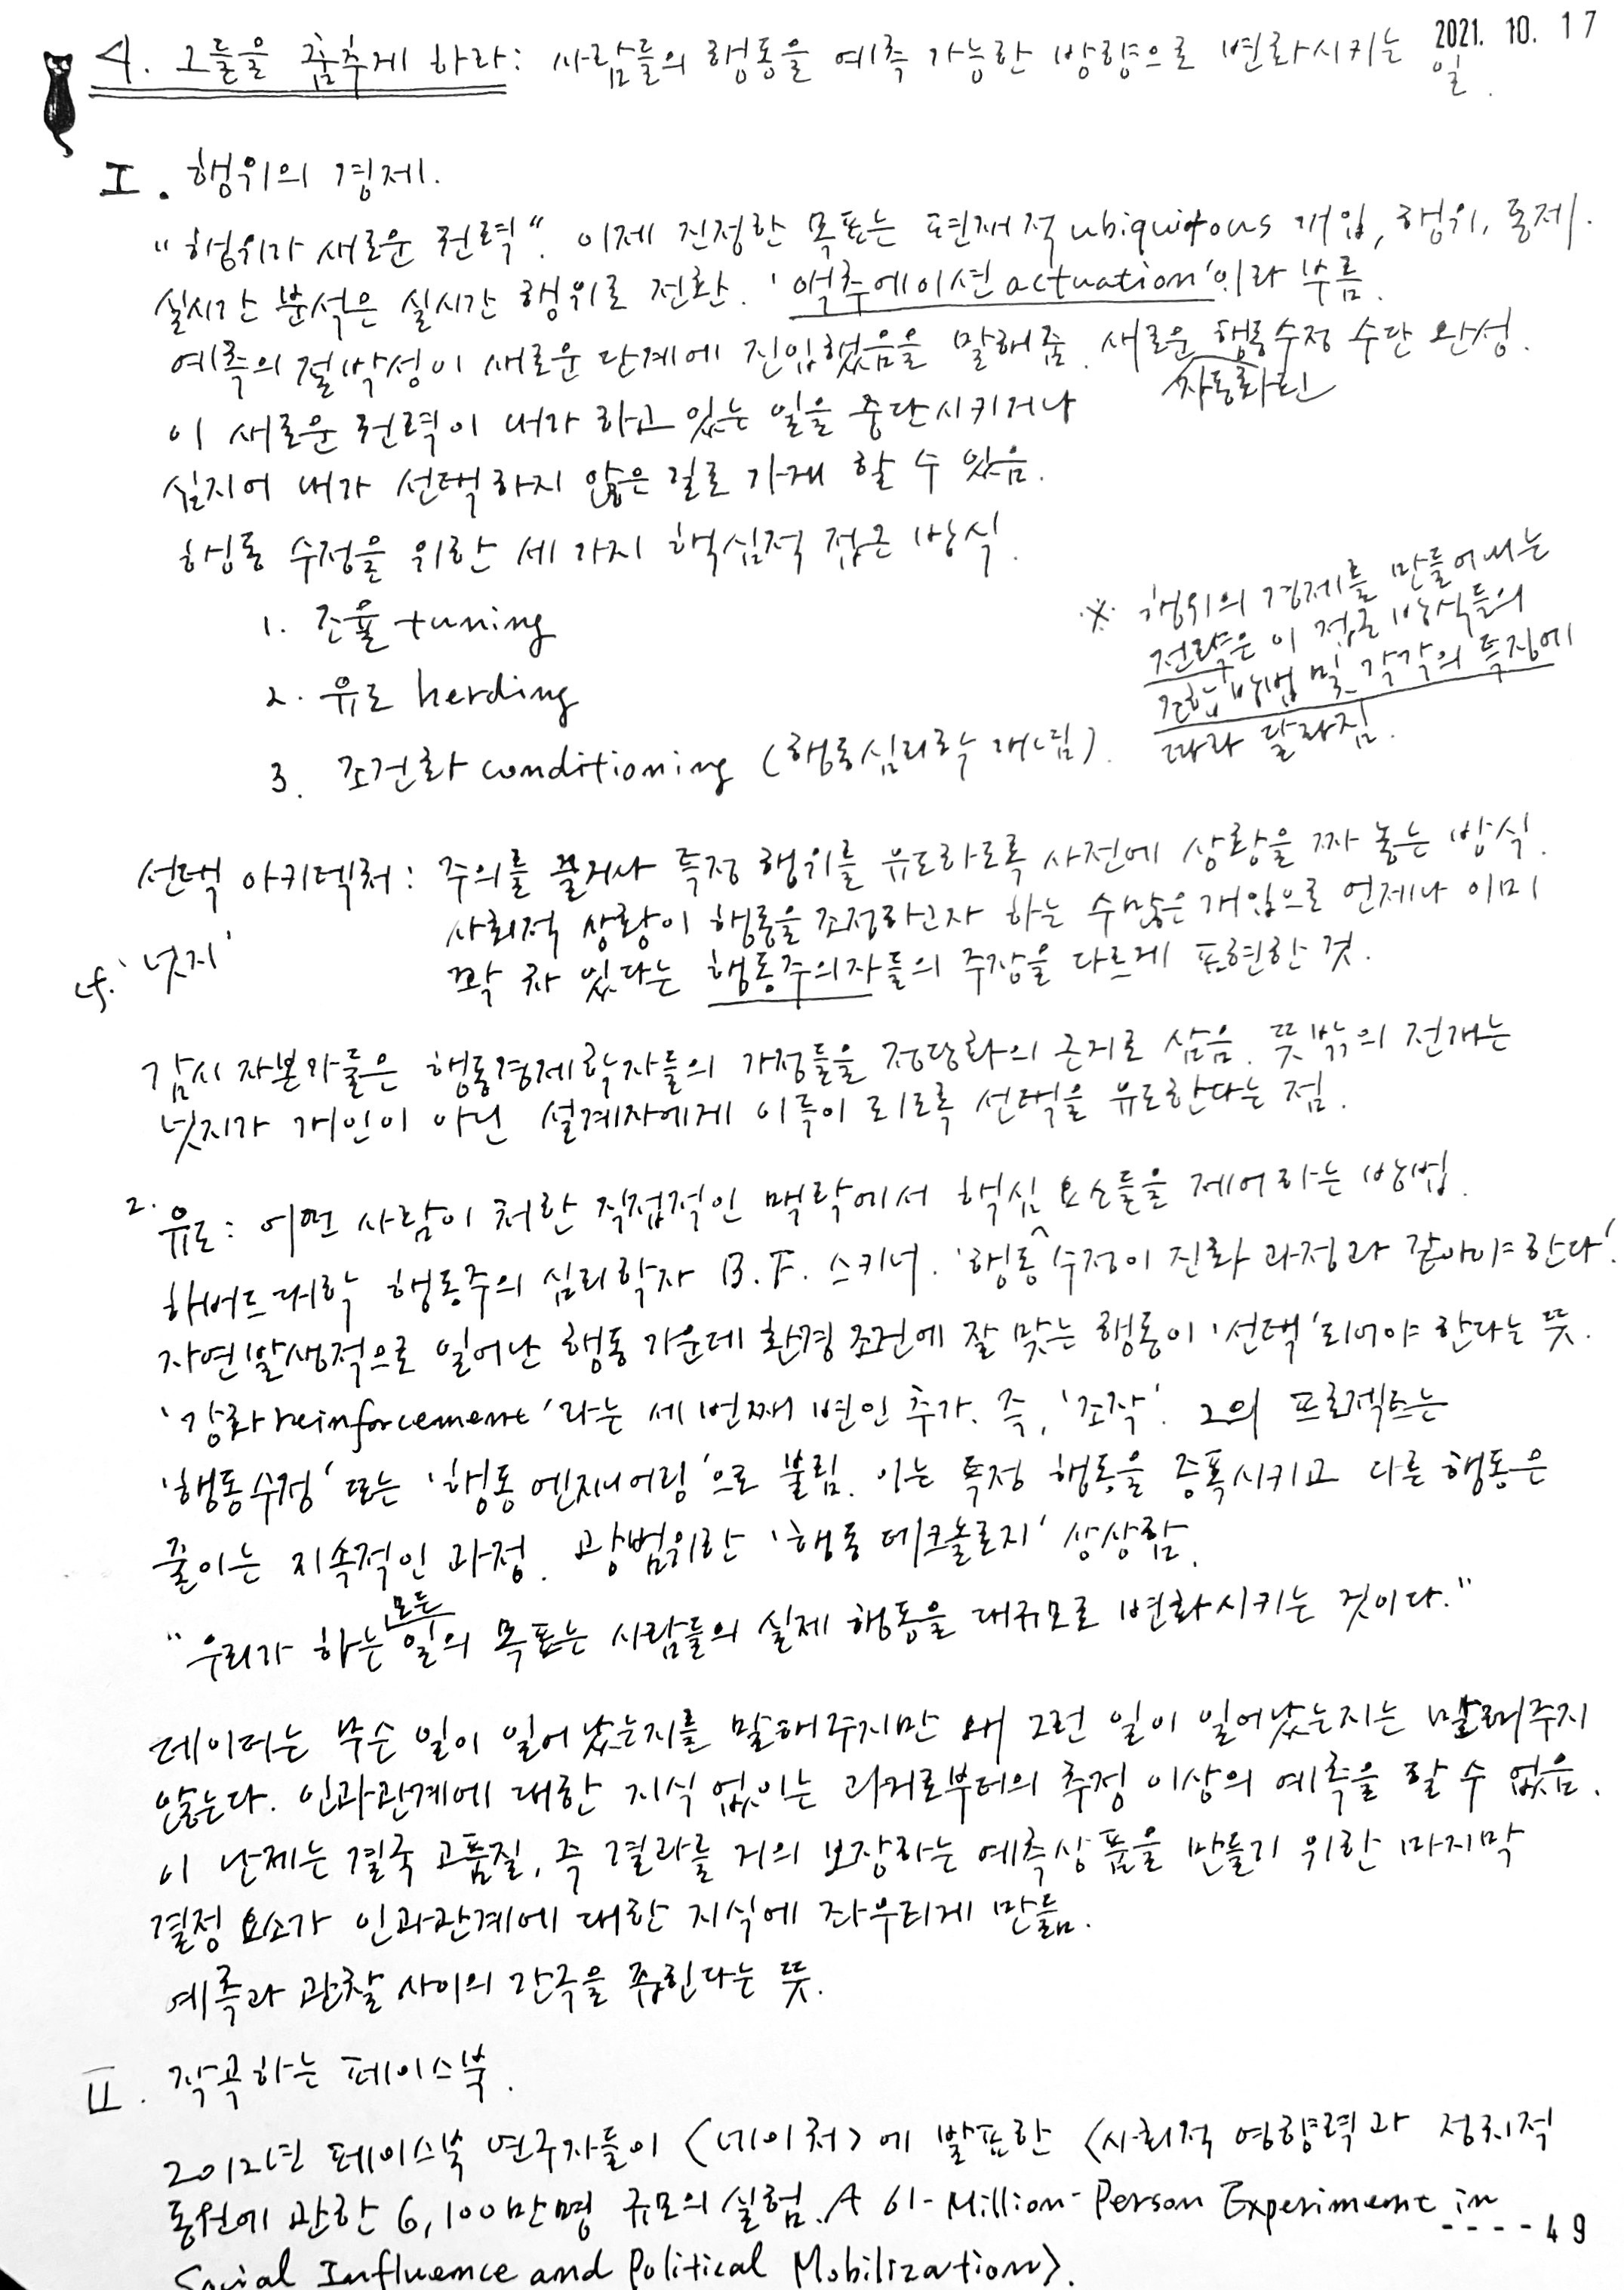 2021. 10. 17
4. 그들을 춤추게 하라: 사람들의 행동을 예측 가능한 방향으로 변화시키는 일.
I. 행위의 경제.
"행위가 새로운 권력". 이제 진정한 목표는 편재적 ubiquitous 개입, 행위, 통제.
실시간 분석은 실시간 행위로 전환. '액추에이션 actuation'이라 부름.
예측의 절박성이 새로운 단계에 진입했음을 말해줌. 새로운 행동수정 수단 완성.
자동화된
이 새로운 권력이 내가 하고 있는 일을 중단시키거나
심지어 내가 선택하지 않은 길로 가게 할 수 있음.
행동 수정을 위한 세 가지 핵심적 접근 방식.
1. 조율 tuning
2. 유도 herding
3. 조건화 conditioning (행동심리학 개념).
※ 행위의 경제를 만들어내는
전략은 이 접근 방식들의
조합 방법 및 각각의 특징에
따라 달라짐.
선택 아키텍처: 주의를 끌거나 특정 행위를 유도하도록 사전에 상황을 짜 놓는 방식.
사회적 상황이 행동을 조정하고자 하는 수많은 개입으로 언제나 이미
cf. '넛지'
꽉 차 있다는 행동주의자들의 주장을 다르게 표현한 것.
감시 자본가들은 행동경제학자들의 가정들을 정당화의 근거로 삼음. 뜻밖의 전개는
넛지가 개인이 아닌 설계자에게 이득이 되도록 선택을 유도한다는 점.
2. 유도: 어떤 사람이 처한 직접적인 맥락에서 핵심 요소들을 제어하는 방법.
하버드대학 행동주의 심리학자 B.F. 스키너. '행동 수정이 진화 과정과 같아야 한다'.
자연발생적으로 일어난 행동 가운데 환경 조건에 잘 맞는 행동이 '선택'되어야 한다는 뜻.
'강화 reinforcement'라는 세 번째 변인 추가. 즉, '조작'. 그의 프로젝트는
'행동수정' 또는 '행동 엔지니어링'으로 불림. 이는 특정 행동을 증폭시키고 다른 행동은
줄이는 지속적인 과정. 광범위한 '행동 테크놀로지' 상상함.
"우리가 하는 모든 일의 목표는 사람들의 실제 행동을 대규모로 변화시키는 것이다."
데이터는 무슨 일이 일어났는지를 말해주지만 왜 그런 일이 일어났는지는 말해주지
않는다. 인과관계에 대한 지식 없이는 과거로부터의 추정 이상의 예측을 할 수 없음.
이 난제는 결국 고품질, 즉 결과를 거의 보장하는 예측상품을 만들기 위한 마지막
결정 요소가 인과관계에 대한 지식에 좌우되게 만듦.
예측과 관찰 사이의 간극을 좁힌다는 뜻.
II. 작곡하는 페이스북.
2012년 페이스북 연구자들이 <네이처>에 발표한 <사회적 영향력과 정치적
동원에 관한 6,100만명 규모의 실험. A 61-Million-Person Experiment in
Social Influence and Political Mobilization>.
----49